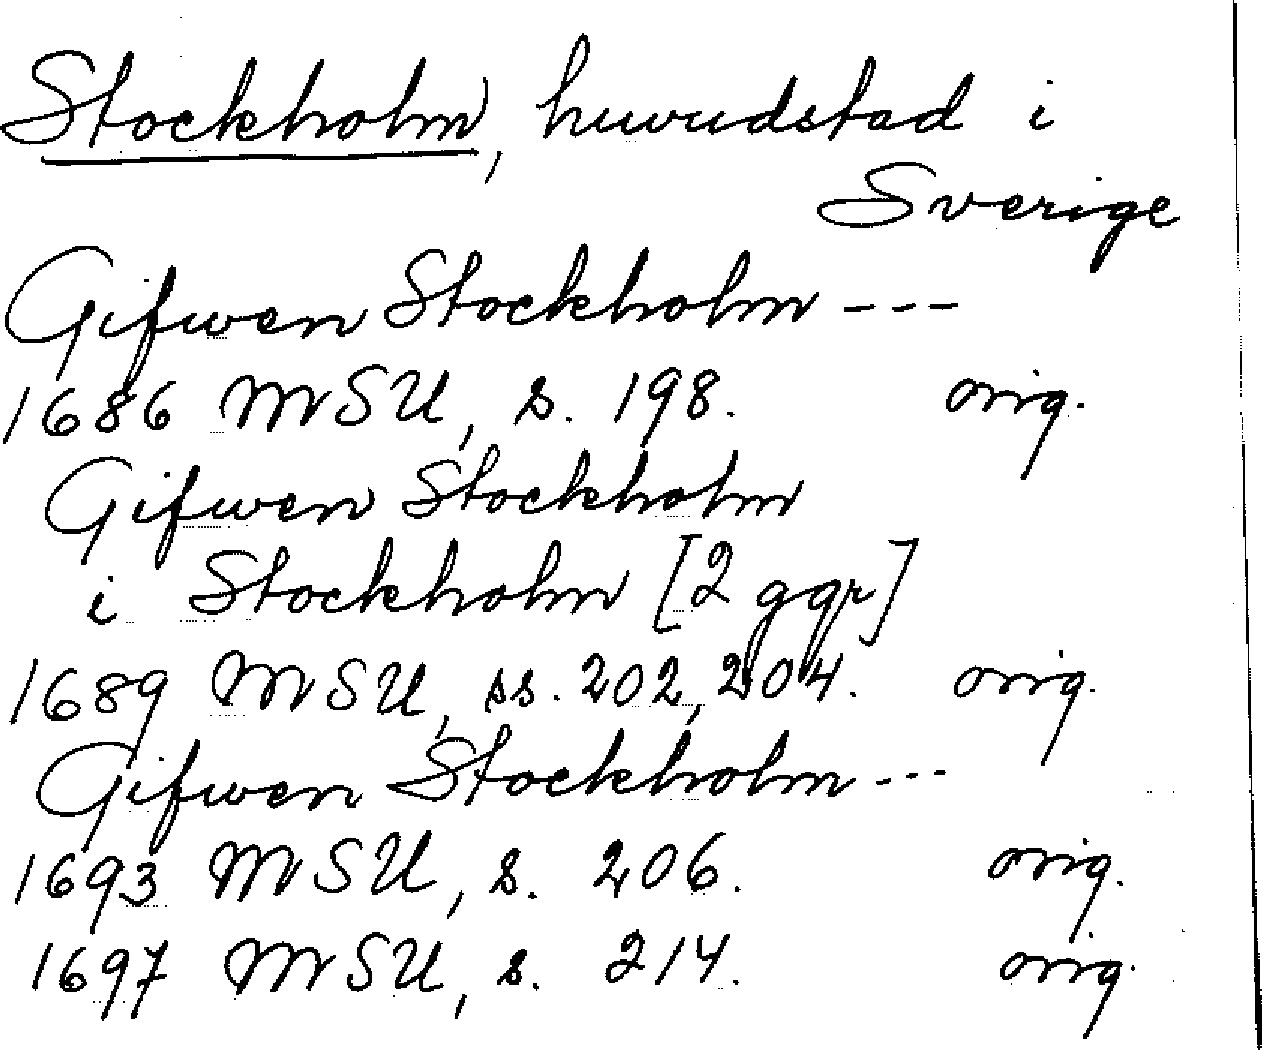 Stockholm, huvudstad i
Sverige
Gifwen Stockholm ---
1686 MSU, s. 198. orig.
Gifwen Stockholm
i Stockholm [2 ggr]
1689 MSU, ss. 202, 204. orig.
Gifwen Stockholm ---
1693 MSU, s. 206. orig.
1697 MSU, s. 214. orig.